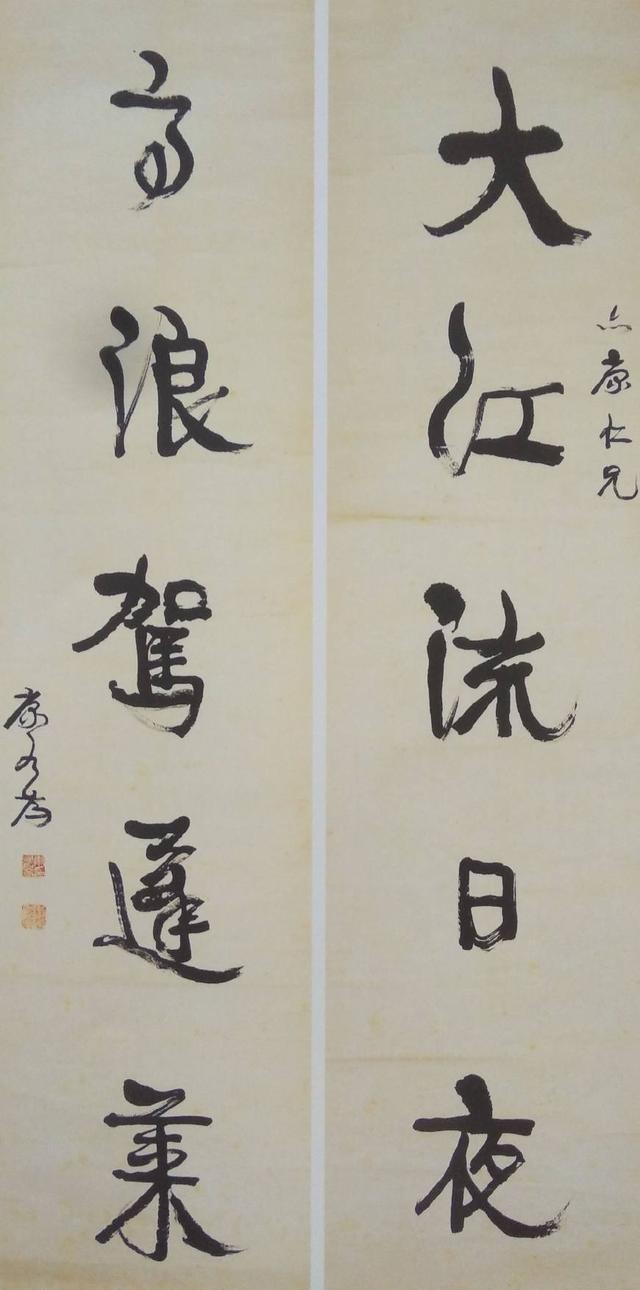 大江流日夜
亦康仁兄
高浪駕蓬萊
康有為